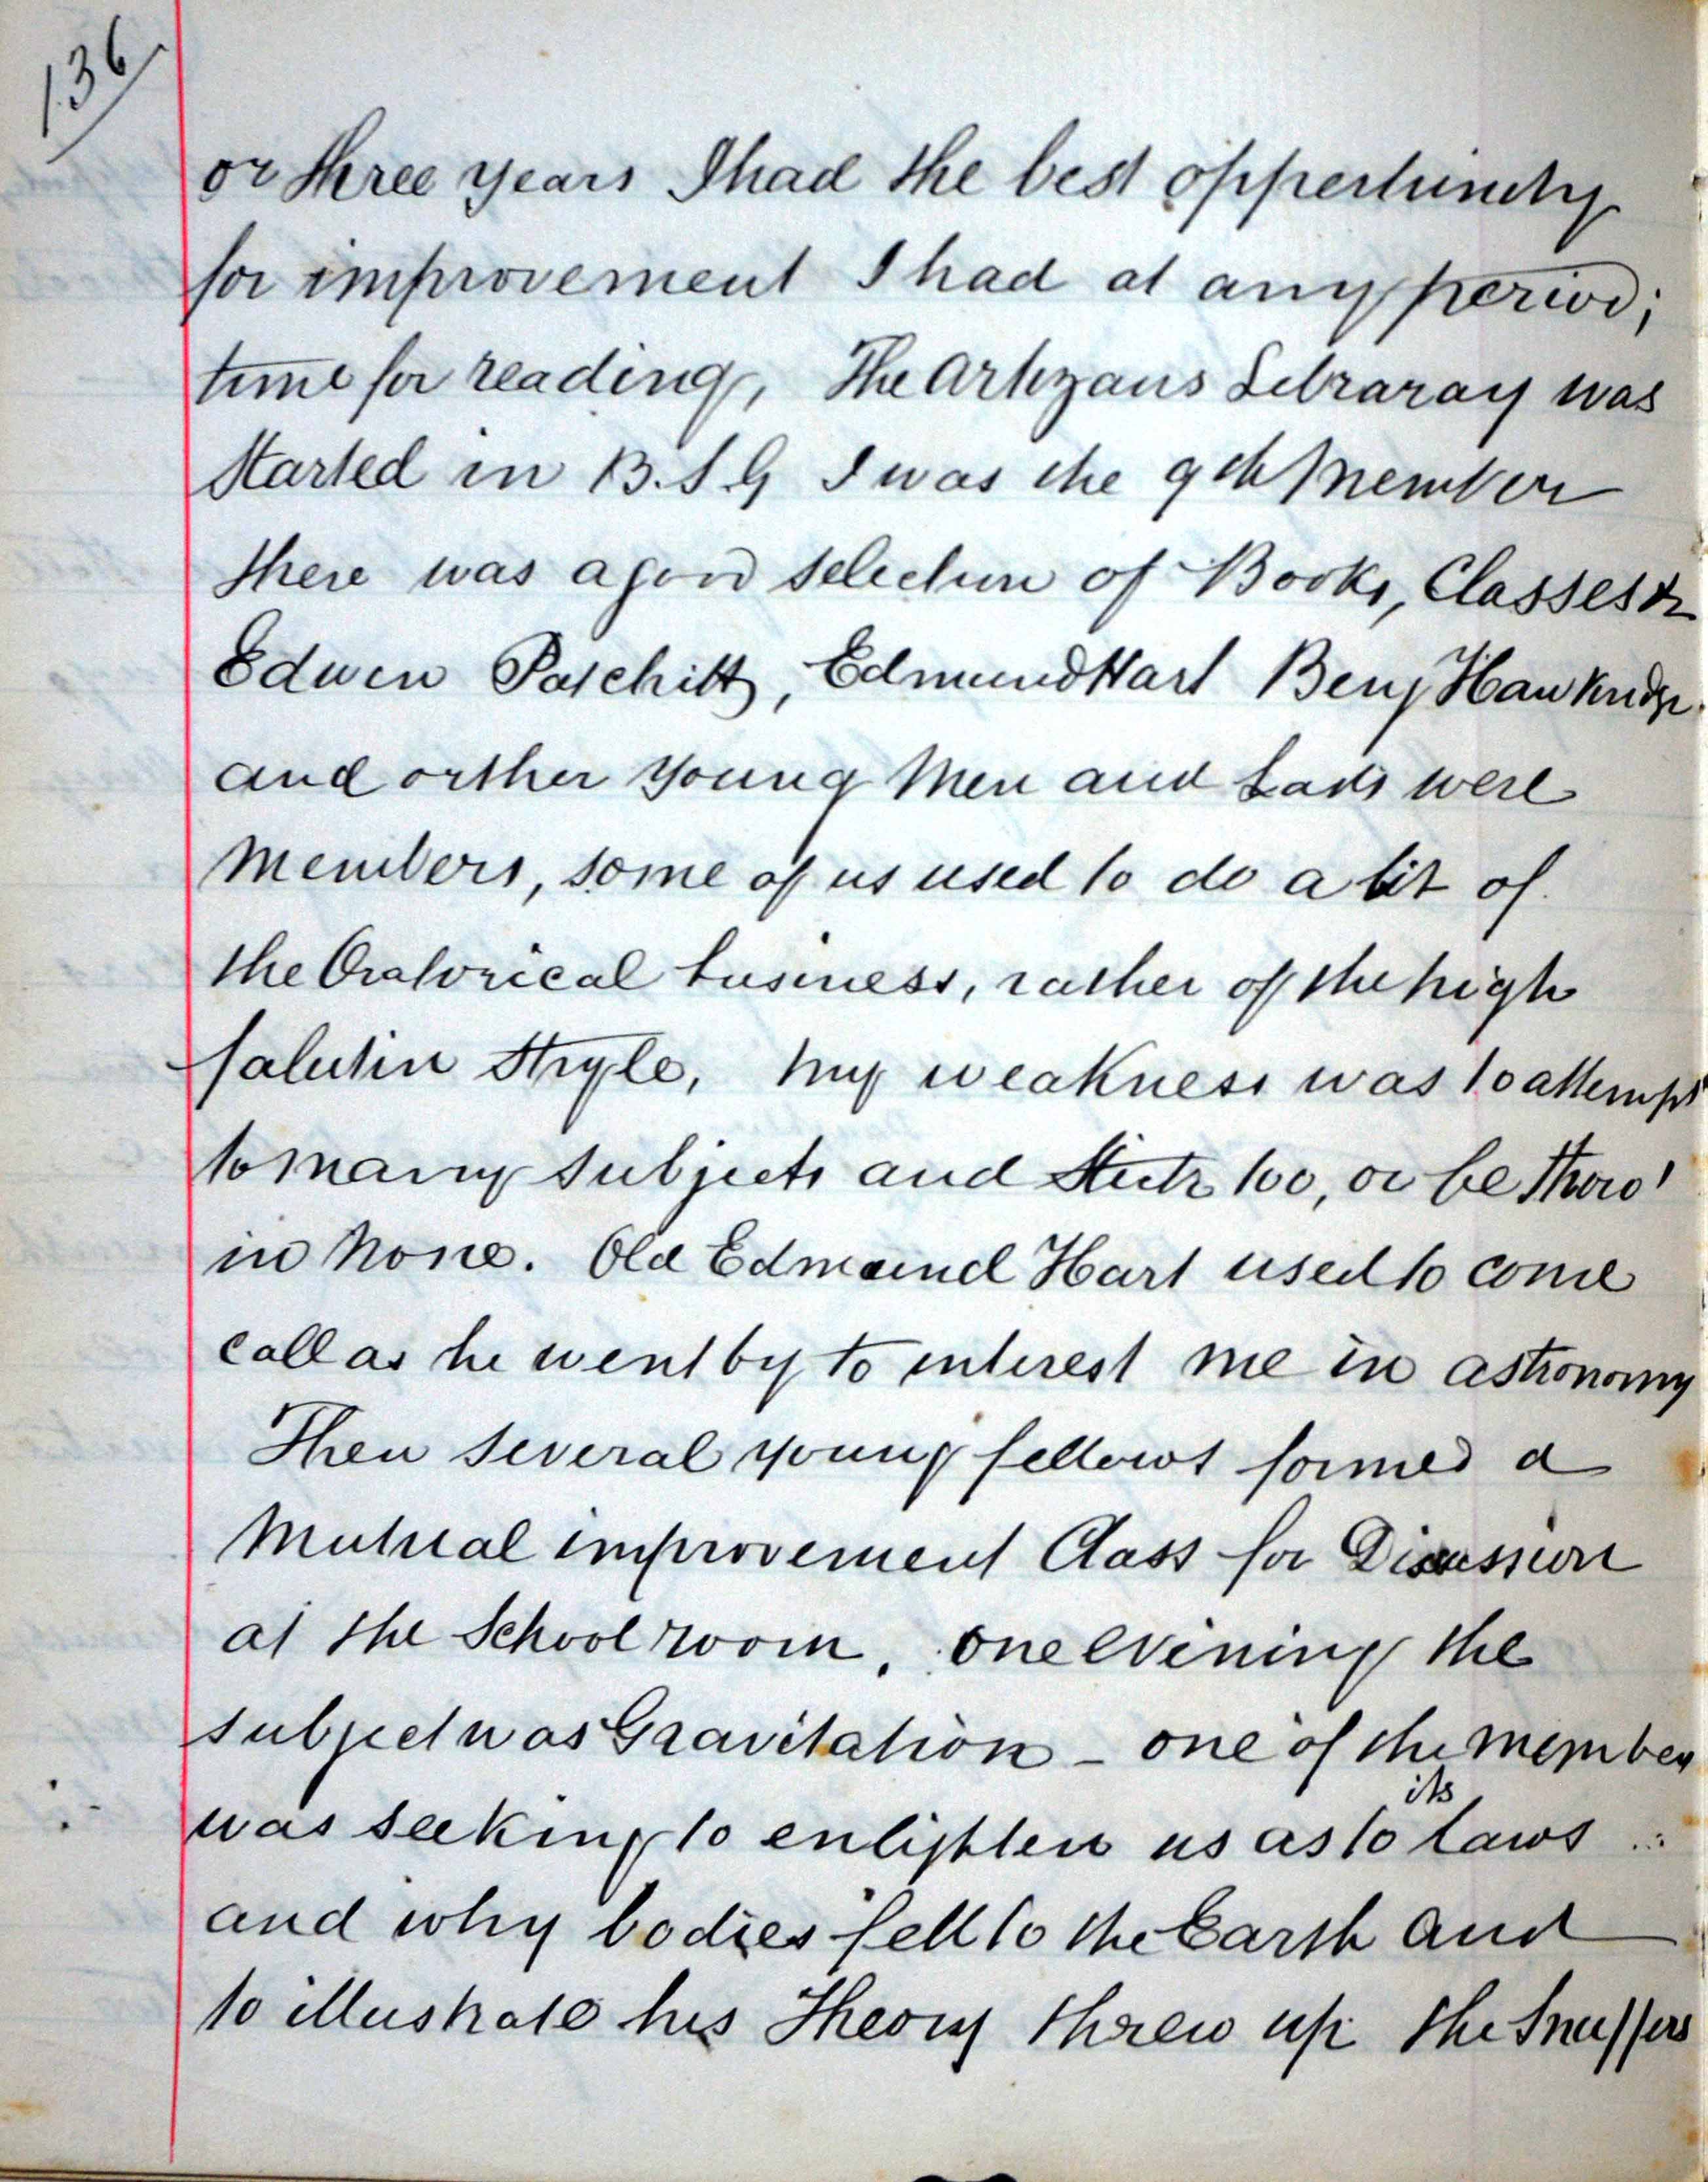 136
or three years I had the best oppertunity
for improvement I had at any period;
time for reading, The Artizans Libraray was
started in B.S.G I was the 9th Member
there was a good selection of Books, Classes &
Edwin Paschitt, Edmund Hart Benj Hawkridge.
and orther young Men and Lads were
Members, some of us used to do a bit of
the Oratorical business, rather of the high
falutin Style, my weakness was to attempt
to many subjects and too, or be thoro'
in none. Old Edmund Hart used to come
call as he went by to interest me in astronomy
Then several young fellows formed a
Mutual improvement Class for Discussion
at the School room, one evening the
subject was Gravitation - one of the member
was seeking to enlighten us as to its laws
and why bodies fell to the Earth and
to illustrate his Theory threw up the Snuffers